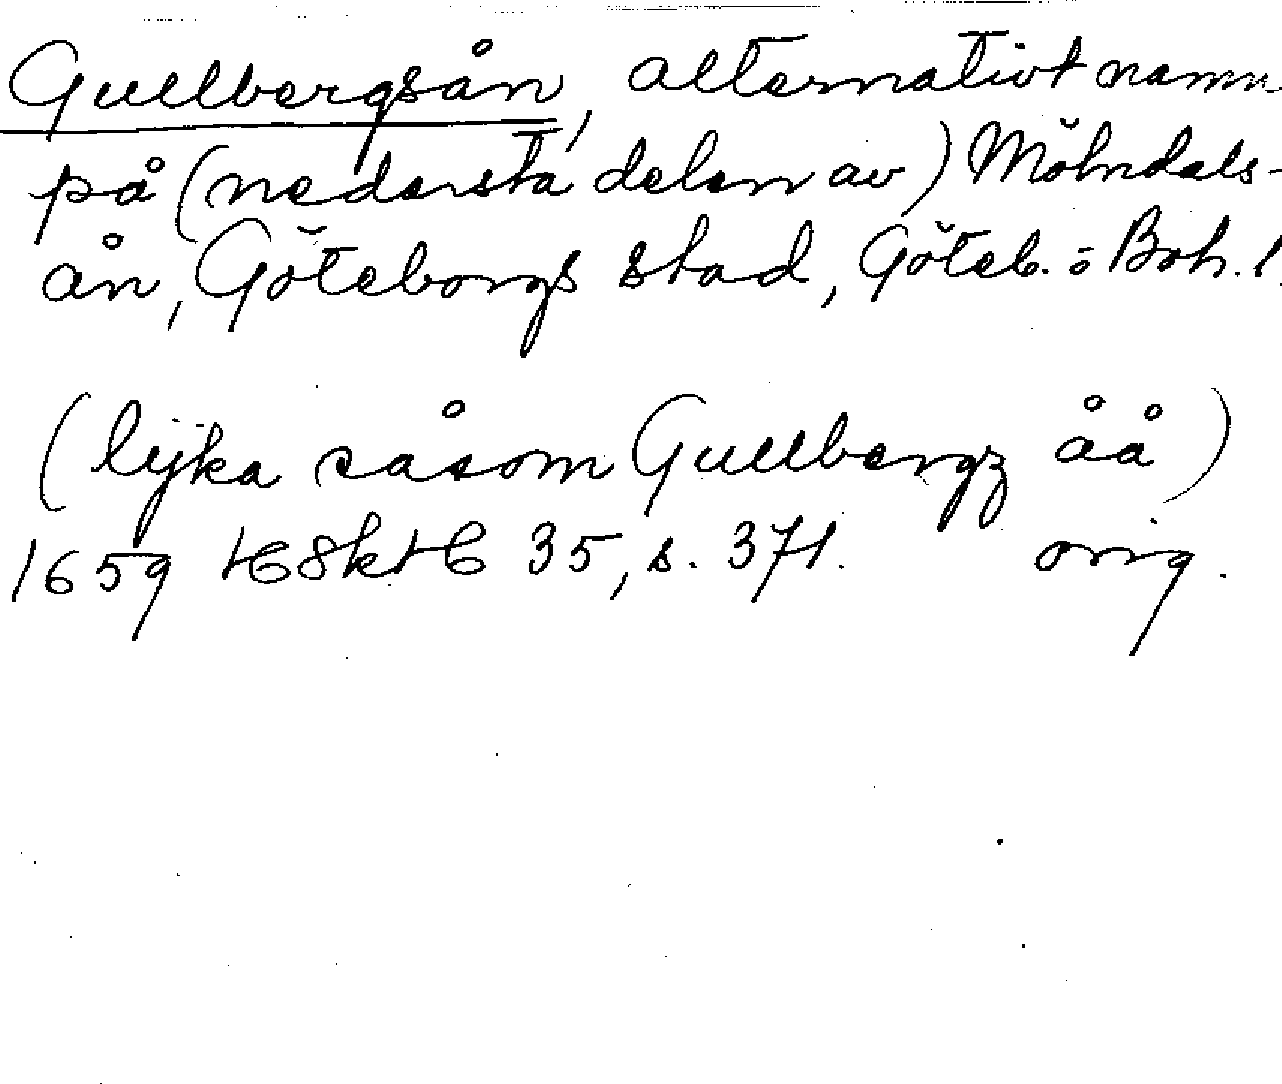 Gullbergsån, alternativt namn
på (nedersta delen av) Mölndals-
ån, Göteborgs stad, Göteb. o Boh. l.
(lijka såsom Gullbergz åå)
1659 HH 35, s. 371. orig.